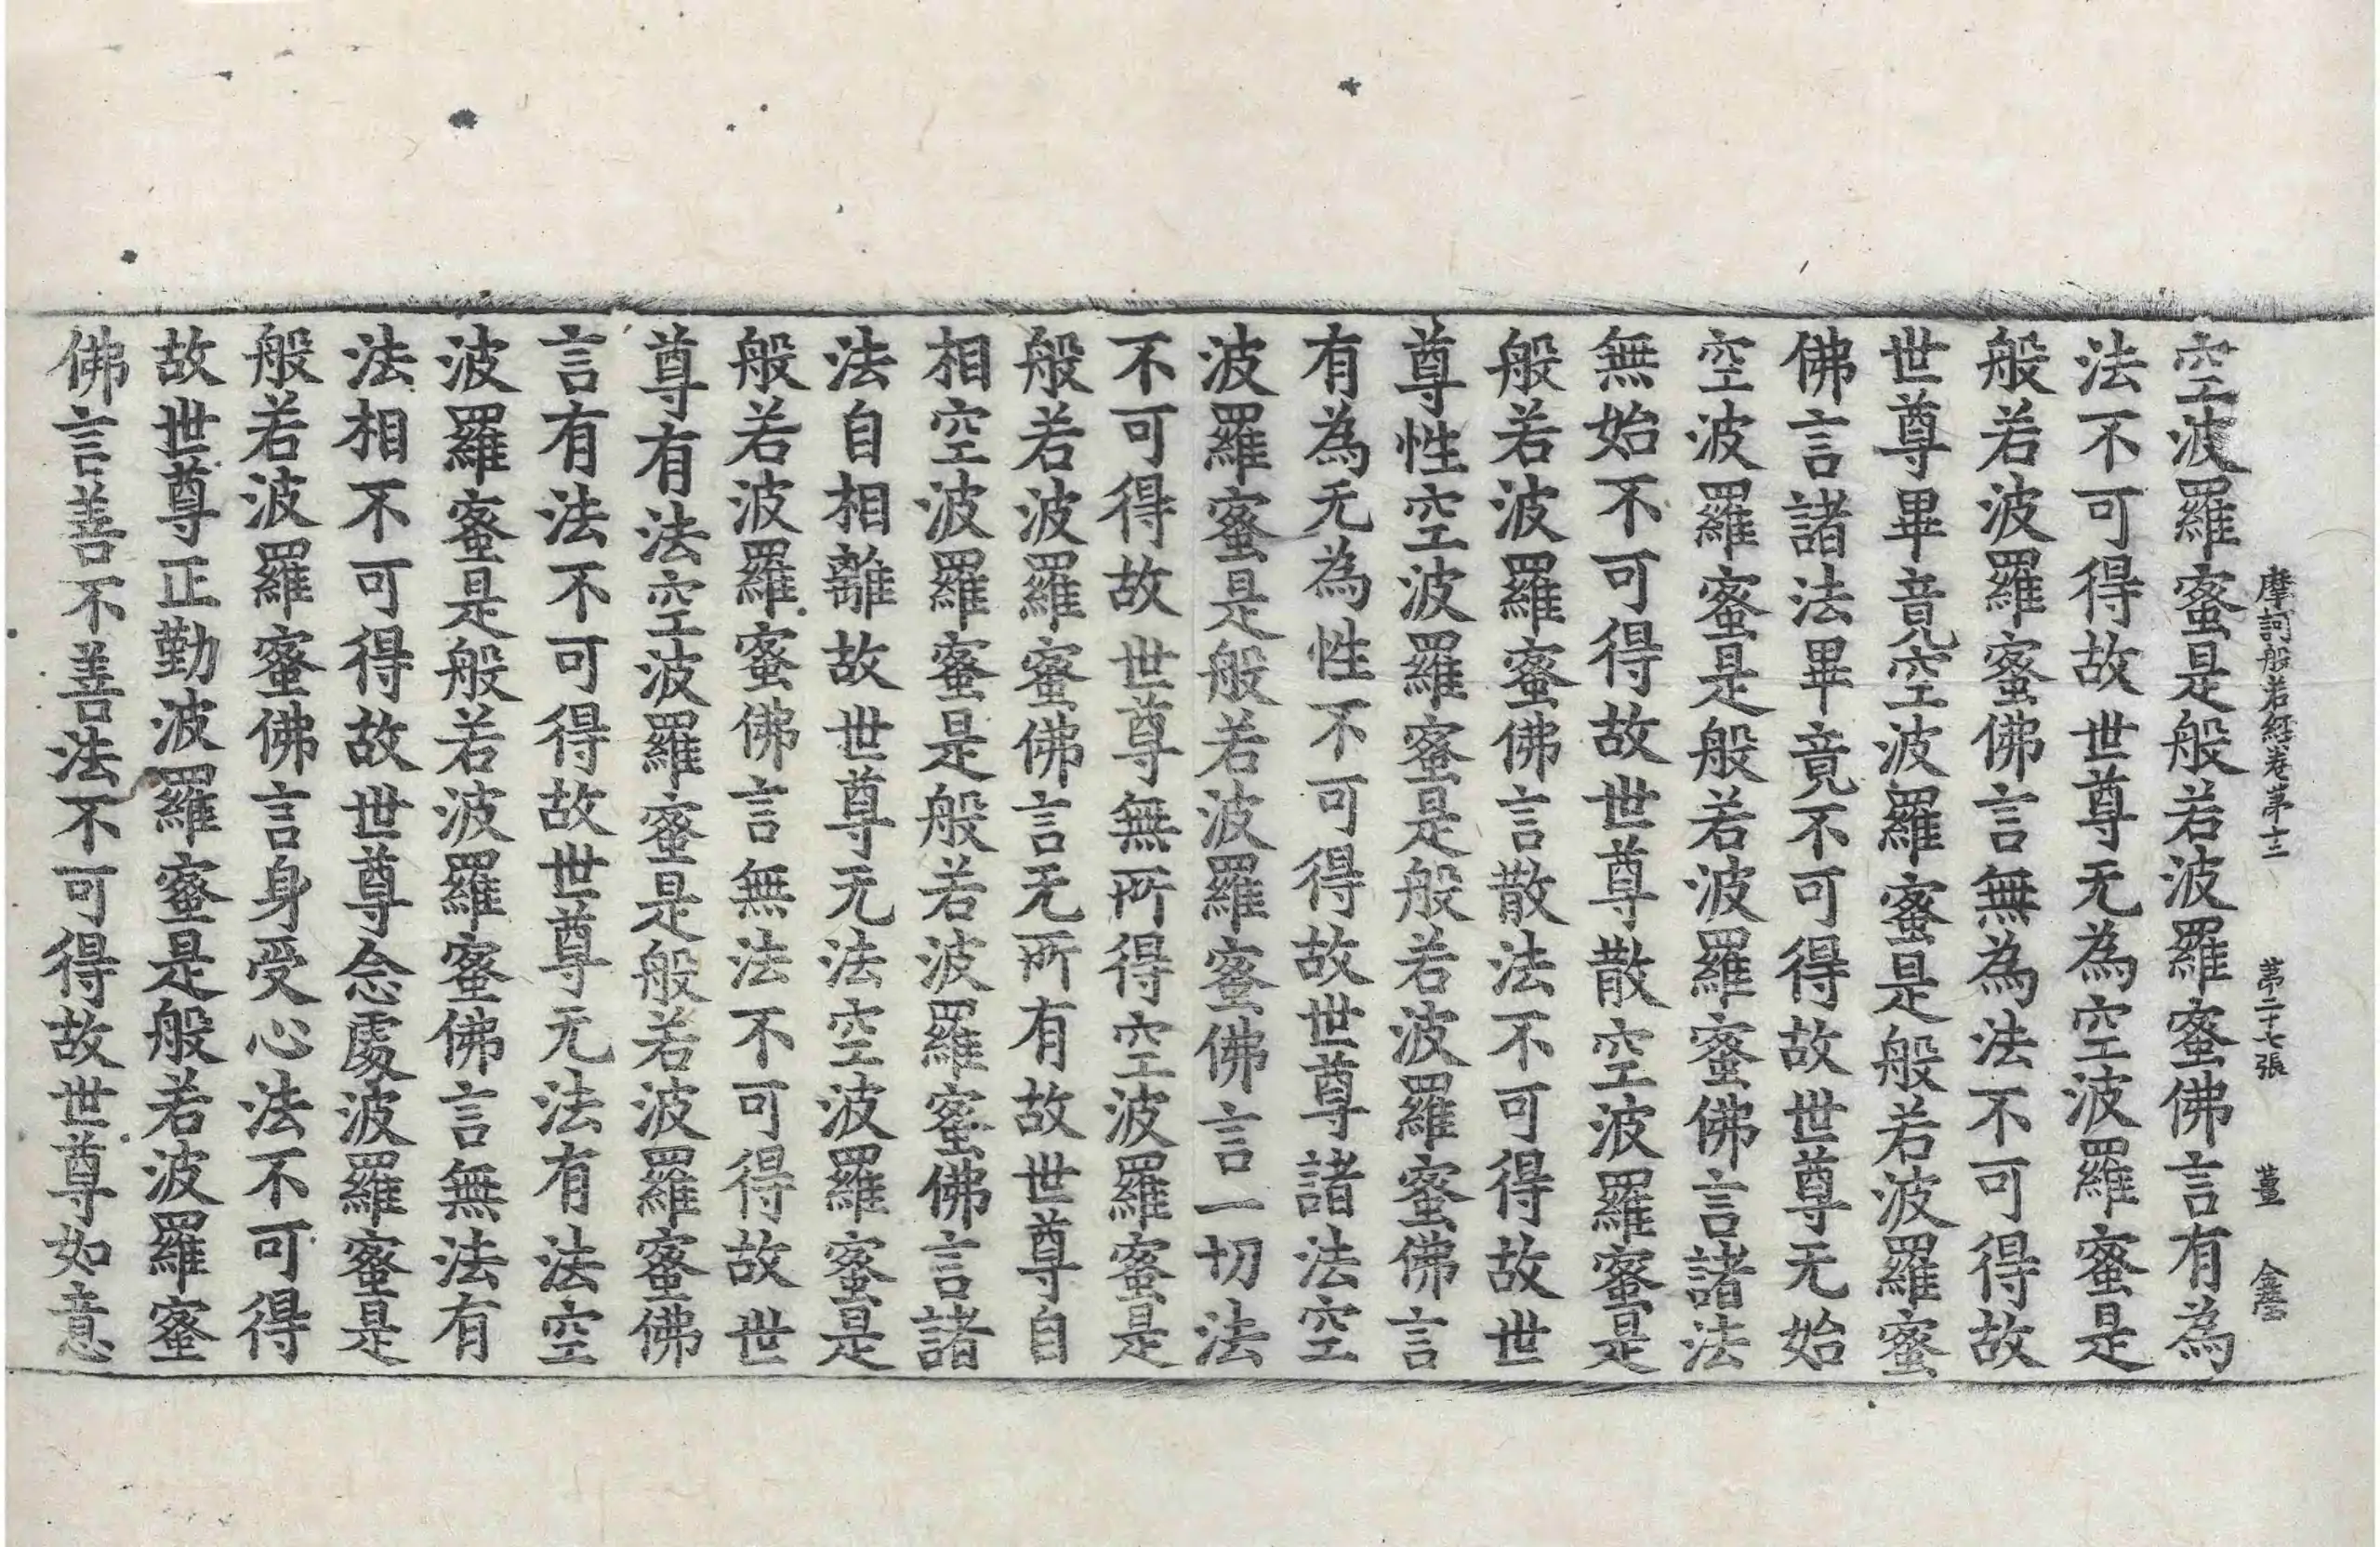 摩訶般若経巻第十三 第二十七張 薑
空波羅蜜是般若波羅蜜佛言有為
法不可得故世尊无為空波羅蜜是
般若波羅蜜佛言無為法不可得故
世尊畢竟空波羅蜜是般若波羅蜜
佛言諸法畢竟不可得故世尊无始
空波羅蜜是般若波羅蜜佛言諸法
無始不可得故世尊散空波羅蜜是
般若波羅蜜佛言散法不可得故世
尊性空波羅蜜是般若波羅蜜佛言
有為无為性不可得故世尊諸法空
波羅蜜是般若波羅蜜佛言一切法
不可得故世尊無所得空波羅蜜是
般若波羅蜜佛言无所有故世尊自
相空波羅蜜是般若波羅蜜佛言諸
法自相離故世尊无法空波羅蜜是
般若波羅蜜佛言無法不可得故世
尊有法空波羅蜜是般若波羅蜜佛
言有法不可得故世尊无法有法空
波羅蜜是般若波羅蜜佛言無法有
法相不可得故世尊念處波羅蜜是
般若波羅蜜佛言身受心法不可得
故世尊正勤波羅蜜是般若波羅蜜
佛言善不善法不可得故世尊如意